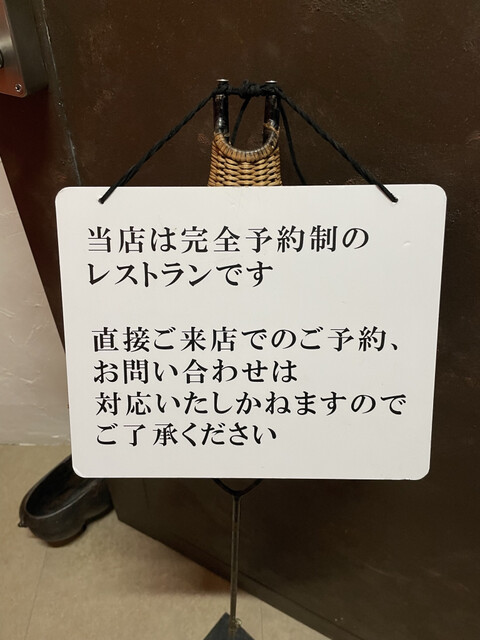 当店は完全予約制の
レストランです
直接ご来店でのご予約、
お問い合わせは
対応いたしかねますので
ご了承ください